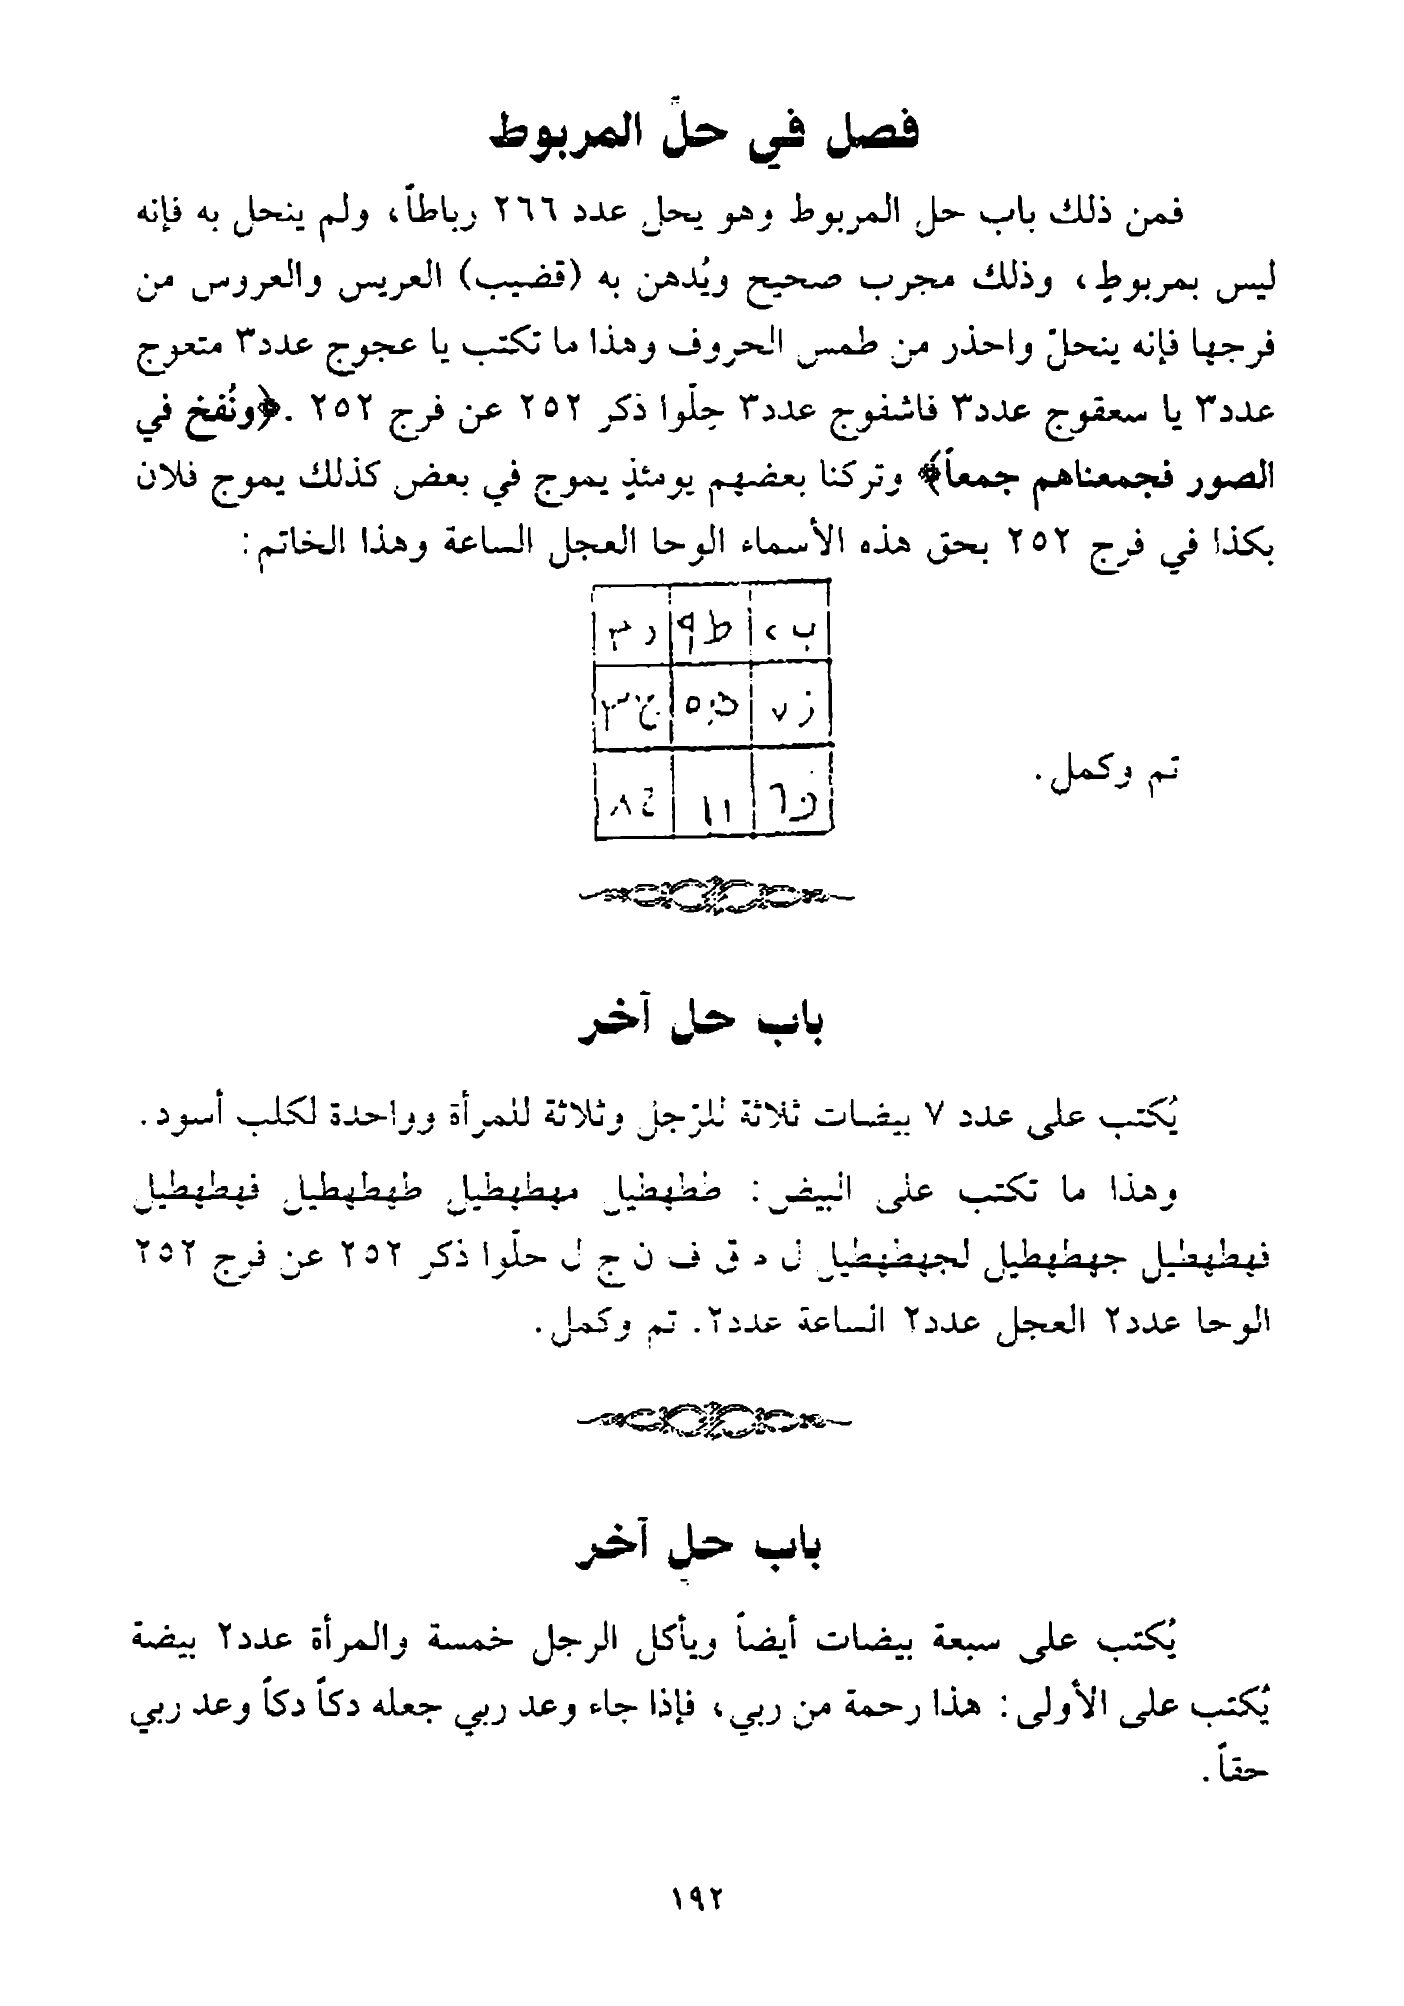 فصل في حلّ المربوط
فمن ذلك باب حل المربوط وهو يحل عدد ٢٦٦ رباطاً، ولم ينحل به فإنه
ليس بمربوطٍ، وذلك مجرب صحيح ويُدهن به (قضيب) العريس والعروس من
فرجها فإنه ينحلّ واحذر من طمس الحروف وهذا ما تكتب يا عجوج عدد٣ متعوج
عدد٣ يا سعقوج عدد٣ فاشفوج عدد٣ حِلّوا ذكر ٢٥٢ عن فرج ٢٥٢ .﴿ونُفخ في
الصور فجمعناهم جمعاً﴾ وتركنا بعضهم يومئذٍ يموج في بعض كذلك يموج فلان
بكذا في فرج ٢٥٢ بحق هذه الأسماء الوحا العجل الساعة وهذا الخاتم:
ب ط٩ د٣
ز٧ ٥ ج٣
و٦ ١ا ح٨
تم وكمل.
باب حل آخر
يُكتب على عدد ٧ بيضات ثلاثة للرّجل وثلاثة للمرأة وواحدة لكلب أسود.
وهذا ما تكتب على البيض: ططهطيل مهطهطيل طهطهطيل فهطهطيل
فهطهطيل جهطهطيل لجهطهطيل ل م ق ف ن ج ل حلّوا ذكر ٢٥٢ عن فرج ٢٥٢
الوحا عدد٢ العجل عدد٢ الساعة عدد٢. تم وكمل.
باب حل آخر
يُكتب على سبعة بيضات أيضاً ويأكل الرجل خمسة والمرأة عدد٢ بيضة
يُكتب على الأولى: هذا رحمة من ربي، فإذا جاء وعد ربي جعله دكاً دكاً وعد ربي
حقاً.
١٩٢